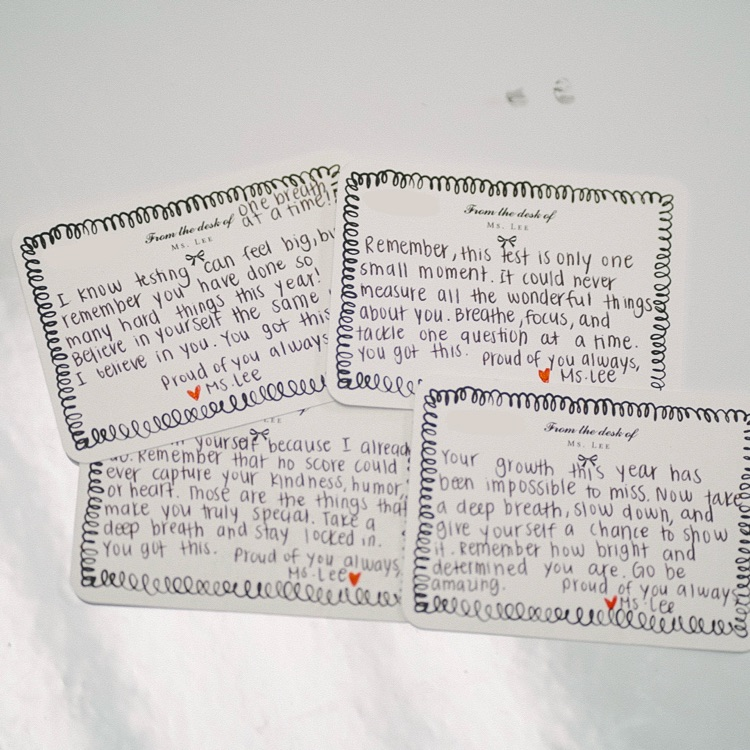 From the desk of
one breath
at a time!!
Ms. Lee
I know testing can feel big,
remember you have done so
many hard things this year!
Believe in yourself the same
I believe in you. You got this
proud of you always
Ms. Lee
From the desk of
Ms. Lee
Remember, this test is only one
small moment. It could never
measure all the wonderful things
about you. Breathe, focus, and
tackle one question at a time.
You got this. proud of you always,
Ms. Lee
yourself because I
Remember that no score could
ever capture your kindness, humor,
or heart. Those are the things that
make you truly special. Take a
deep breath and stay locked in.
You got this. Proud of you always
Ms. Lee
From the desk of
Ms. Lee
Your growth this year has
been impossible to miss. Now take
a deep breath, slow down, and
give yourself a chance to show
it. Remember how bright and
determined you are. Go be
amazing. proud of you always
Ms. Lee